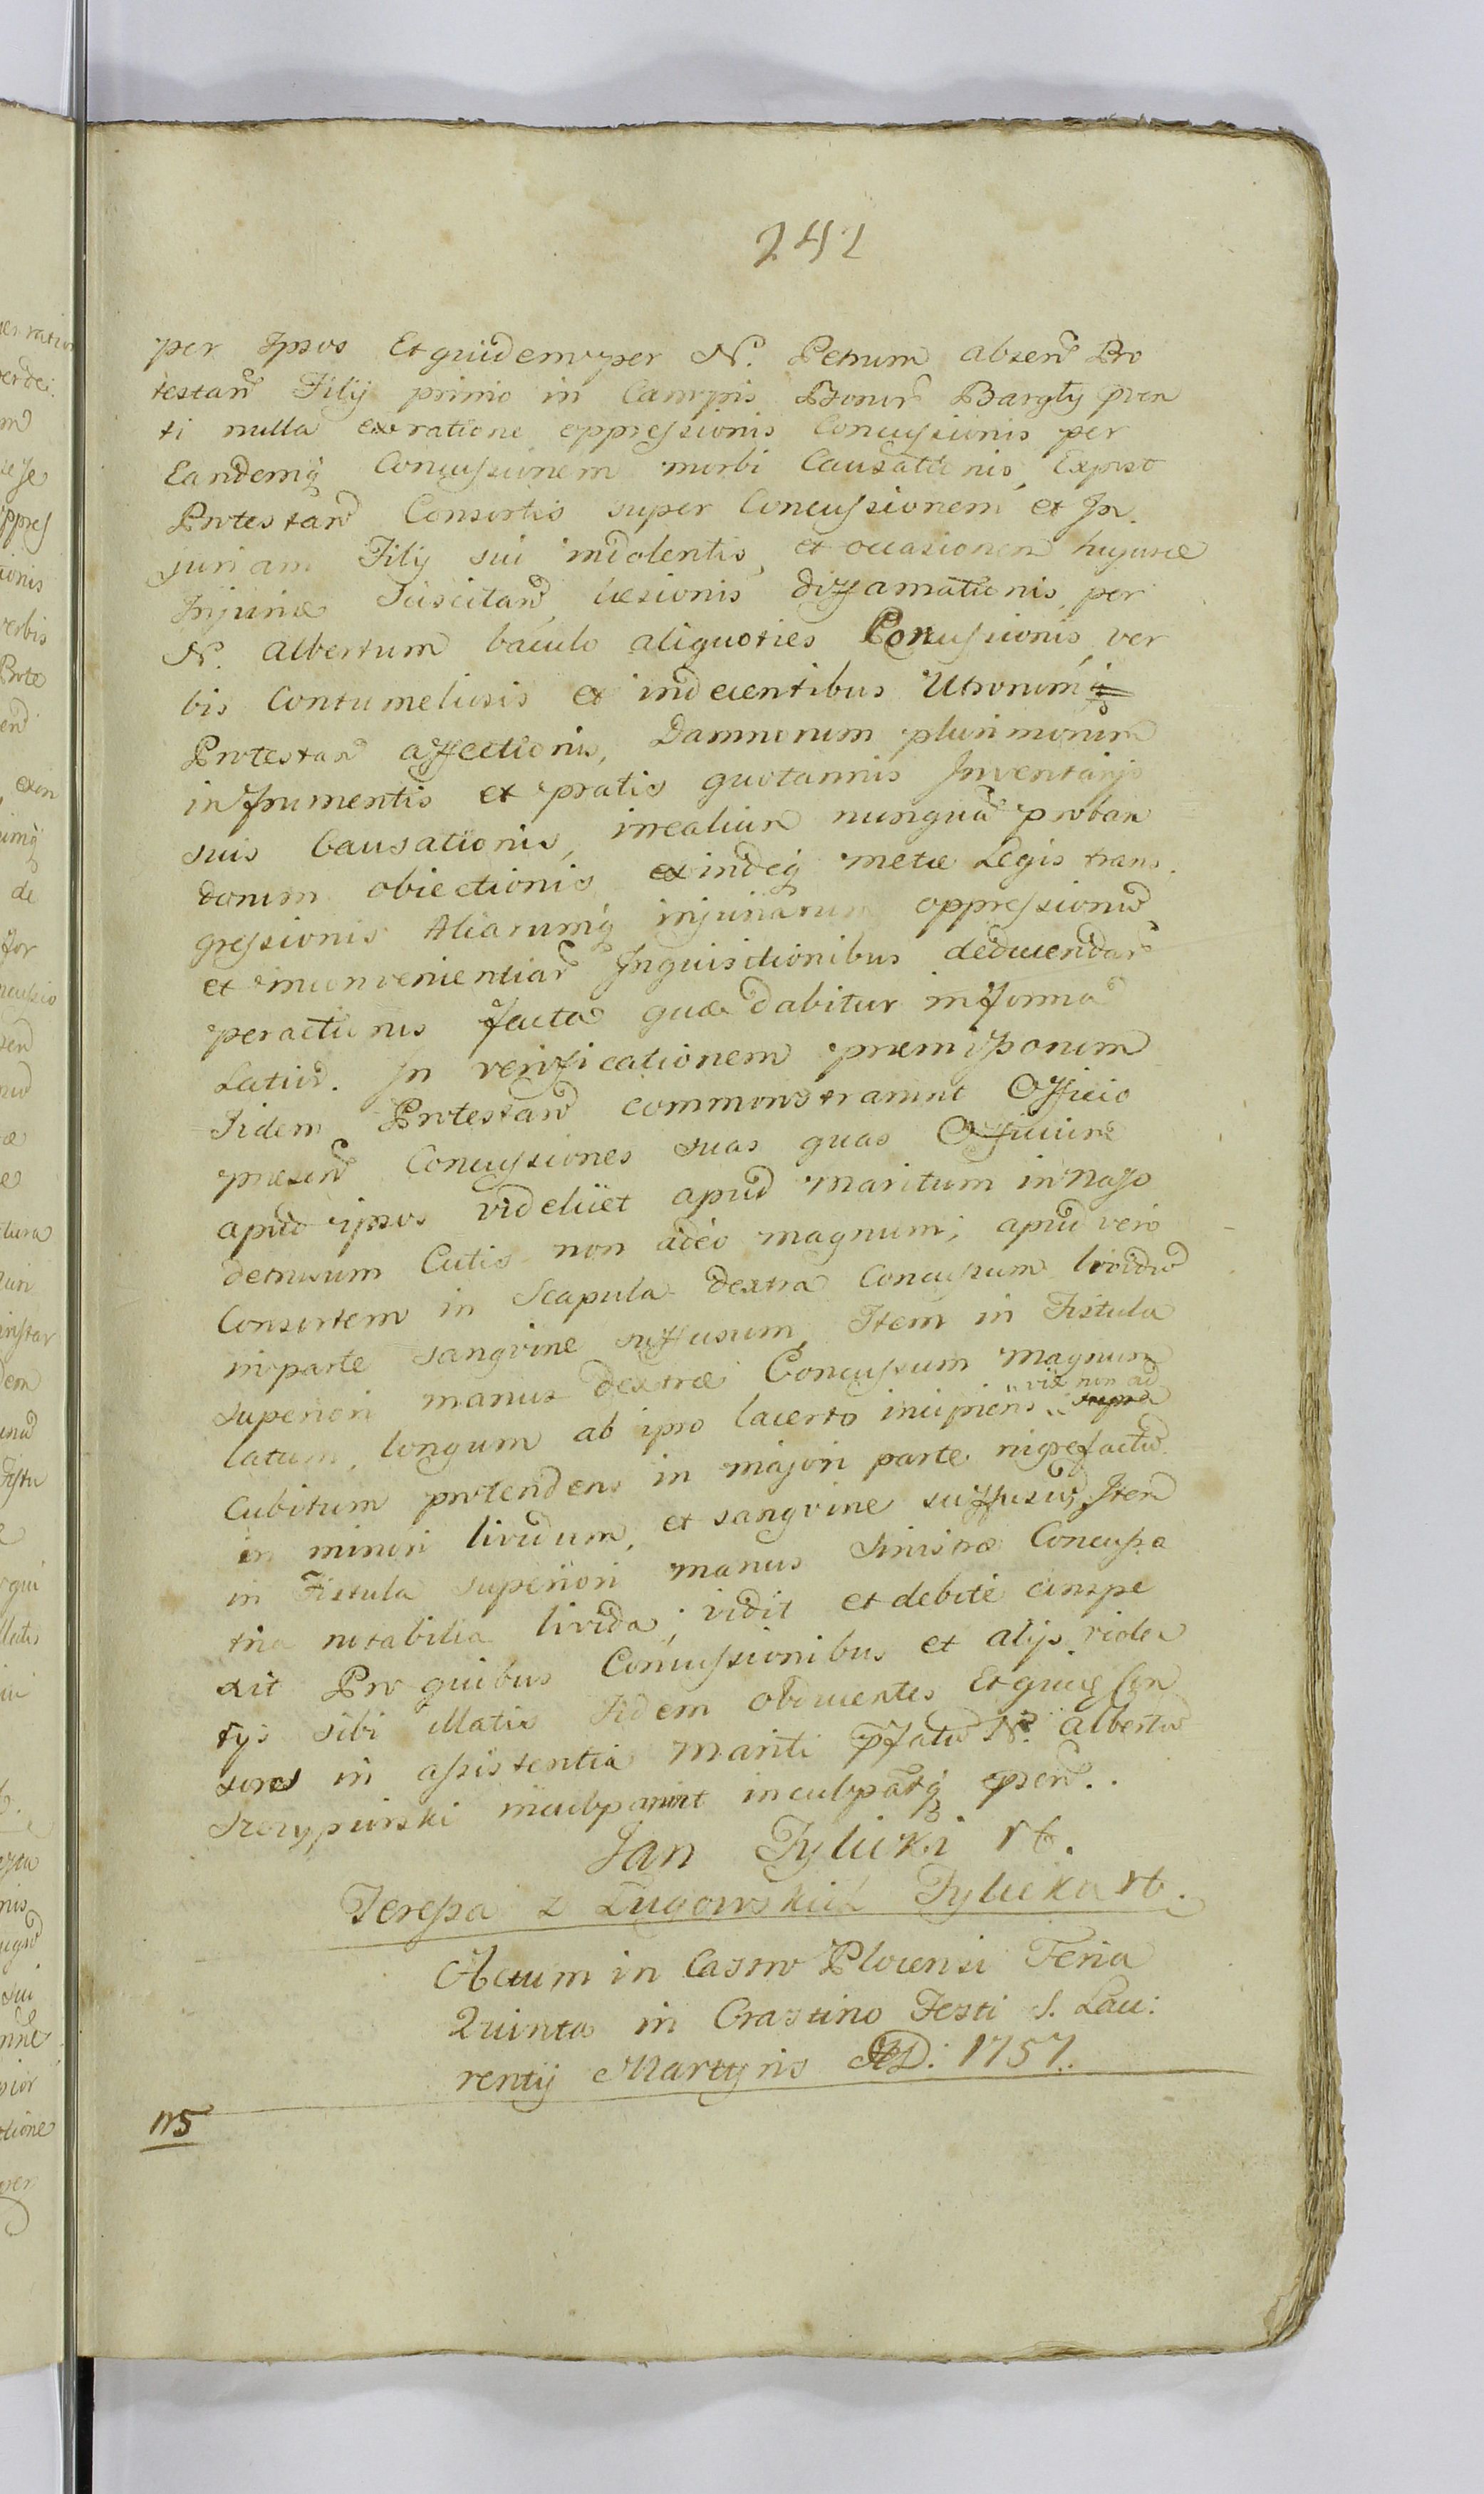 242
per Ipsos Et quidem per N. Petrum absen Pro
testan Filij primo in Campis Bonor Bargły
ti nulla ex ratione oppressionis Concussionis per
Eandemq Concussionem morbi Causationis, Expost
Protestan Consortis super Concussionem et In
juriam Filij sui indolentis, et occasionem hujusce
Injuriæ Suscitan læsionis diffamationis, per
N. Albertum baculo aliquoties Concussionis, ver
bis Contumeliosis et indecentibus Utrorumq
Protestan affectionis, Damnorum plurimorum
in frumentis et pratis quotannis Inventarijs
suis Causationis, irrealium nunquā proban
dorum obiectionis exindeq metæ Legis trans
gressionis Aliarumq injuriarum oppressionū
et inconvenientiar Inquisitionibus deducendar
peractionis facta quæ dabitur in forma
Latiori. In verificationem præmissorum
Iidem Protestan commonstrarunt Officio
præsen Concussiones suas quas Officium
apud ipsos videlicet apud maritum in naso
detrusum Cutis non adeo magnum; apud vero
Consortem in Scapula dextra Concussum lividū
in parte sangvine suffusum, Item in Fistula
superiori manus dextræ Concussum magnum
latum, longum ab ipso lacerto incipiens vix non ad supra
Cubitum protendens in majori parte nigrefactū
in minori lividum, et sangvine suffusū, Item
in Fistula superiori manus sinistræ Concussa
tria notabilia livida; vidit et debite conspe
xit Pro quibus Concussionibus et alijs violen
tijs sibi illatis Iidem obducentes Et quæ Con
sors in assistentia mariti pfatū N. Albertū
inculparunt inculpatq præsen.
Jan Tylicki rb.
Teressa z Ługowskich Tylicka rb.
Actum in Castro Plocensi Feria
Quinta in Crastino Festi S. Lau:
rentij Martyris AD: 1757.
115